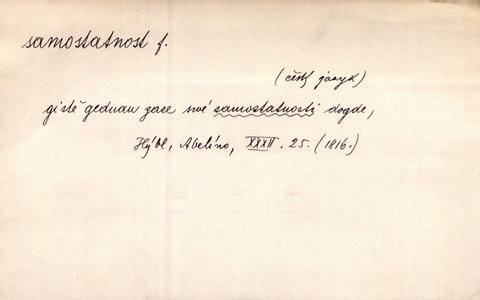 samostatnost f.
(český jazyk)
gistě gednau zase swé samostatnosti dogde,
Hýbl, Abelino, XXXII. 25. (1816.)